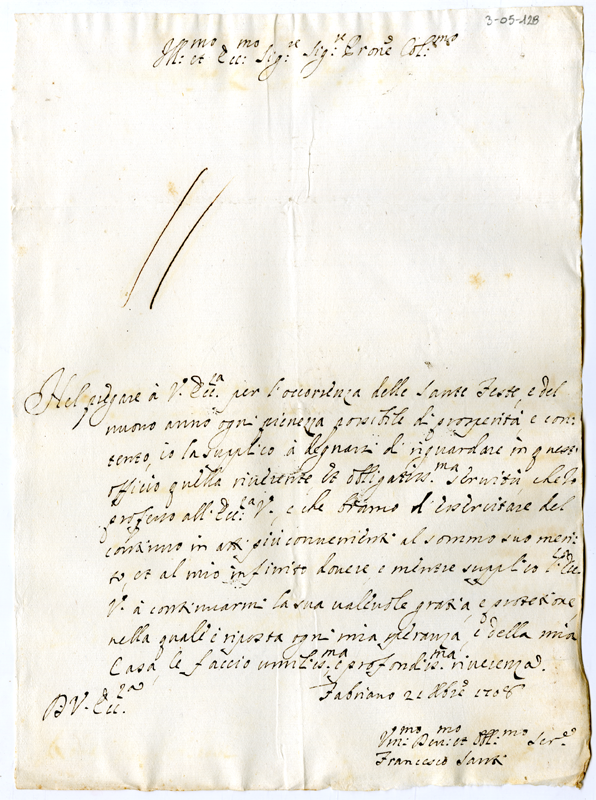 3-05-128
Ill:mo et Ecc:mo Sig:re Sig:re Prone Col:mo
Nel pregare à V. Ecc:za per l'occorrenza delle Sante Feste, e del
nuovo anno ogni pienezza possibile di prosperità e con:
tento, io la supplico à degnarsi di riguardare in questo
officio quella riverente et obligatiss:ma servitù, che Io
professo all'Ecc:za V., e che bramo d'esercitare del
continuo in atti più convenienti al sommo suo meri:
to, et al mio infinito dovere e mentre supplico l'Ecc:za
V. à continuarmi la sua valevole gratia, e protetione,
nella quale è riposta ogni mia speranza, e della mia
Casa, le faccio umilis:ma e profondis:ma riverenza.
Fabriano 21 Xbre 1708
D V. Ecc:za
Vmi:mo Dev:mo et Obl:mo Ser:e
Francesco Santi